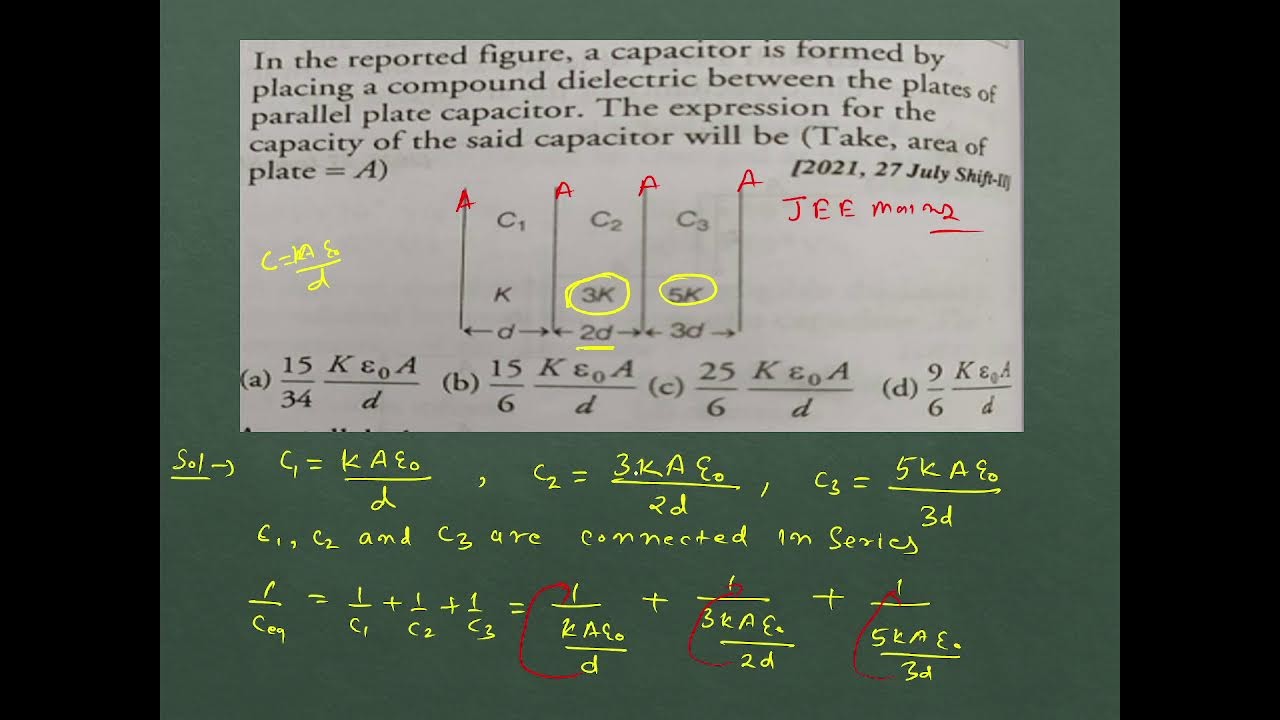 In the reported figure, a capacitor is formed by
placing a compound dielectric between the plates of
parallel plate capacitor. The expression for the
capacity of the said capacitor will be (Take, area of
plate = A)
[2021, 27 July Shift-II]
A A A A
JEE mains
C₁ C₂ C₃
C = KAε₀/d
K 3K 5K
d 2d 3d
(a) 15/34 Kε₀A/d (b) 15/6 Kε₀A/d (c) 25/6 Kε₀A/d (d) 9/6 Kε₀A/d
Sol → C₁ = KAε₀/d , C₂ = 3.KAε₀/2d , C₃ = 5KAε₀/3d
C₁, C₂ and C₃ are connected in series
1/Ceq = 1/C₁ + 1/C₂ + 1/C₃ = 1/(KAε₀/d) + 1/(3KAε₀/2d) + 1/(5KAε₀/3d)